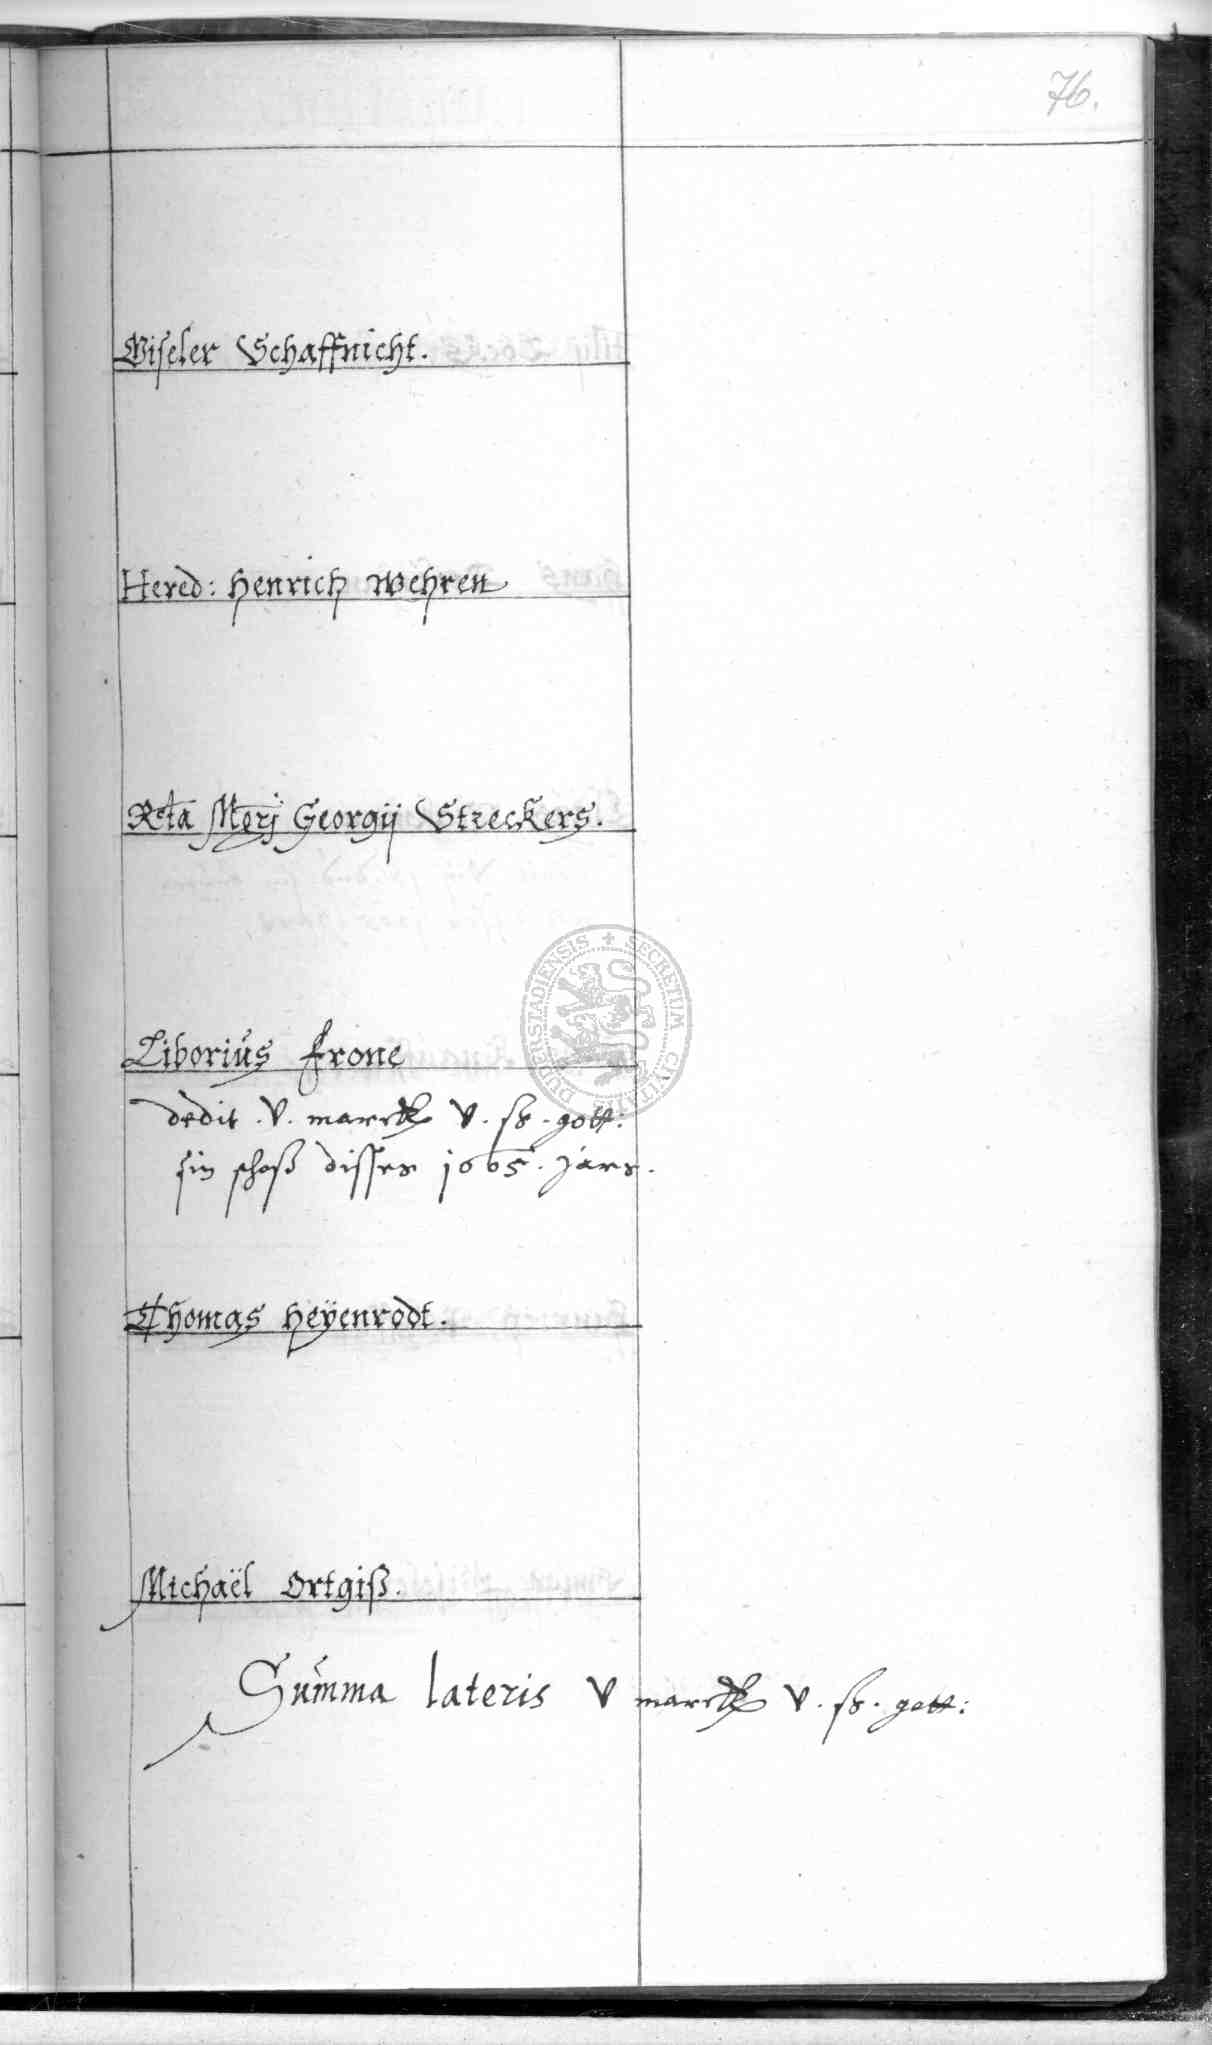 76.
Giseler Schaffnicht.
Hered: Henrich Wehren
Rcta Mgrj Georgij Streckers.
Liborius Frone
dedit . V . marck V . ß . gott:
sin schoß disses 1605 . jars.
Thomas Heÿenrodt.
Michaël Ortgiß.
Summa lateris V marck V . ß . gott:
SECRETUM CIVITATIS DUDERSTADIENSIS